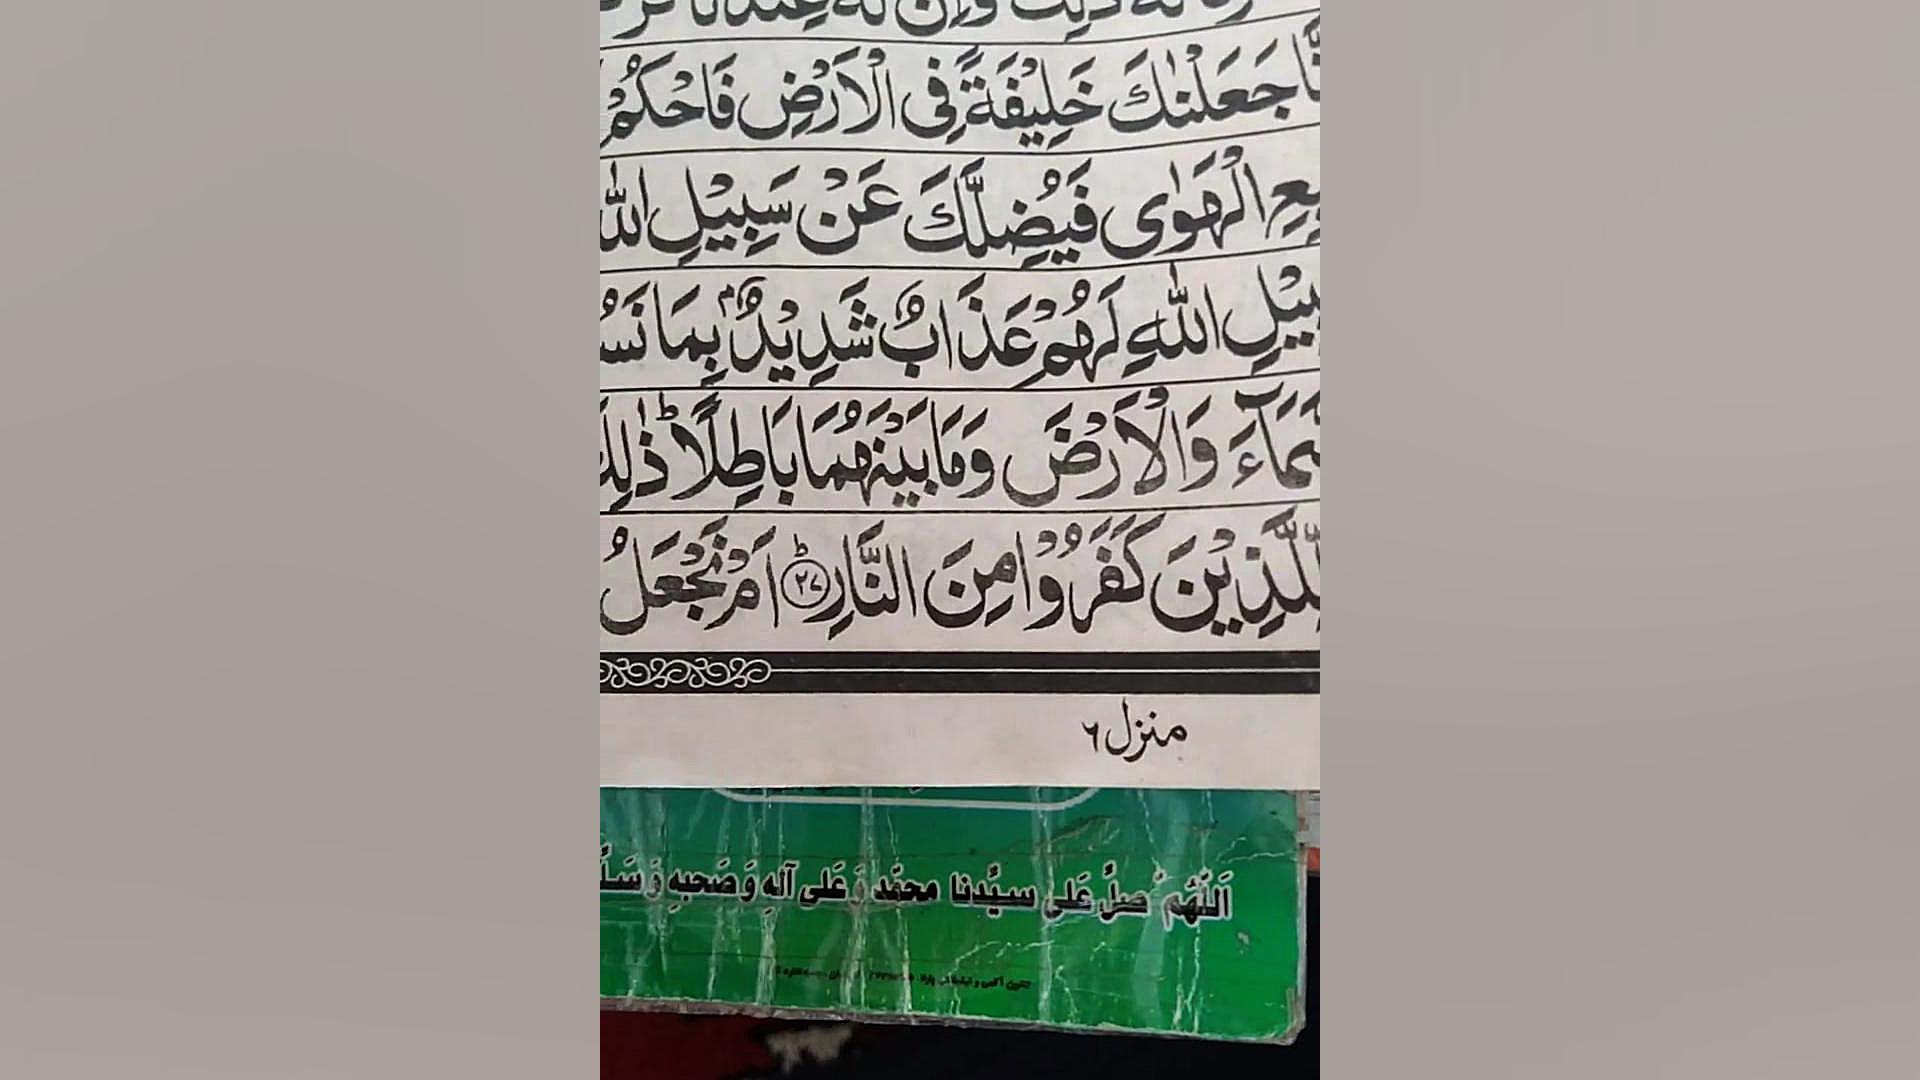 ذٰلِكَ وَاِنَّ لَهٗ عِنْدَنَا
جَعَلْنٰكَ خَلِيْفَةً فِى الْاَرْضِ فَاحْكُمْ
الْهَوٰى فَيُضِلَّكَ عَنْ سَبِيْلِ اللّٰهِ
اللّٰهِ لَهُمْ عَذَابٌ شَدِيْدٌۢ بِمَا
وَالْاَرْضَ وَمَا بَيْنَهُمَا بَاطِلًا ؕ ذٰلِكَ
لِّلَّذِيْنَ كَفَرُوْا مِنَ النَّارِ ؕ ٢٧ اَمْ نَجْعَلُ
منزل ٦
اَللّٰهُمَّ صَلِّ عَلى سيِّدنا محمَّد وَ عَلى آلهِ وَ صَحبهِ وَ